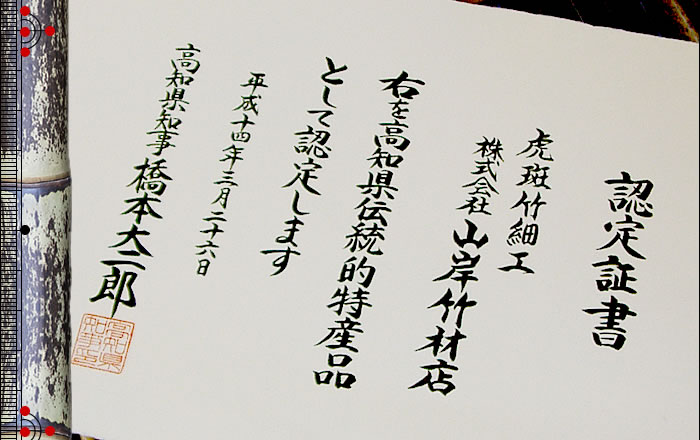 認定証書
虎斑竹細工
株式会社 山岸竹材店
右を高知県伝統的特産品
として認定します
平成十四年三月二十六日
高知県知事 橋本大二郎
高知県知事印